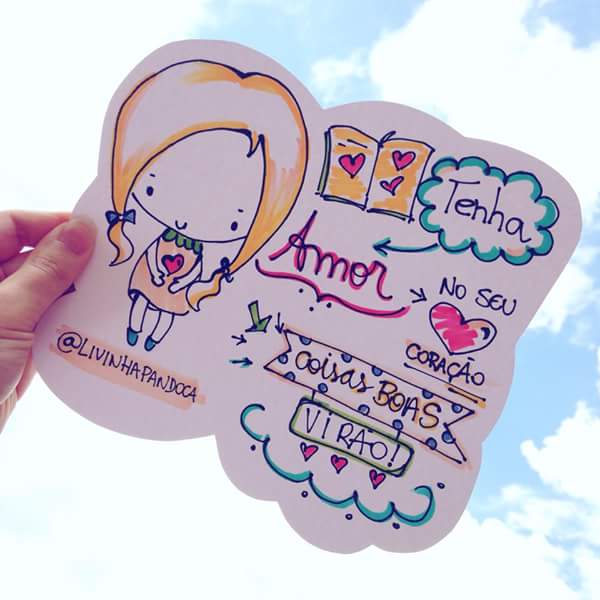 Tenha
Amor
NO SEU
CORAÇÃO
COISAS BOAS
VIRÃO!
@LIVINHAPANDOCA